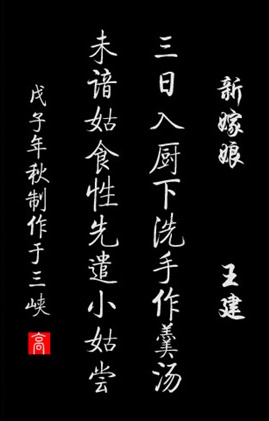 新嫁娘 王建
三日入厨下洗手作羹汤
未谙姑食性先遣小姑尝
戊子年秋制作于三峡
高